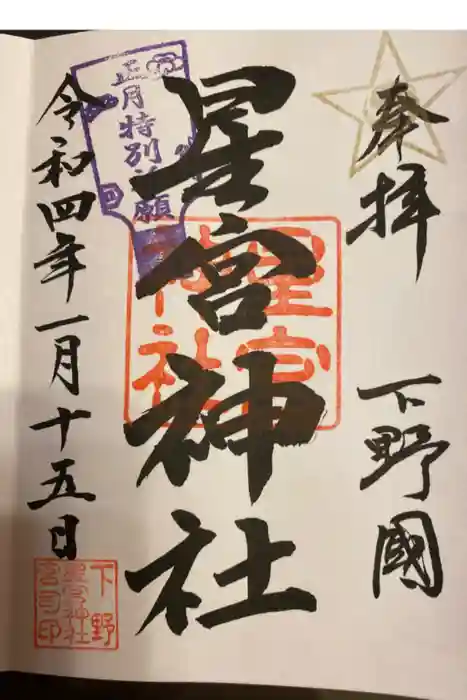 奉拝
下野國
星宮神社
星宮神社
正月特別祈願
令和四年一月十五日
下野
星宮神社
宮司印